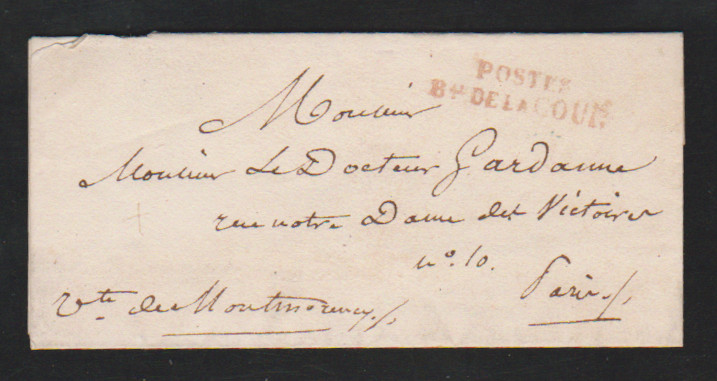 POSTES
Bau DE LA COUR.
Monsieur
Monsieur Le Docteur Gardanne
rue notre Dame des Victoires
no. 10.
Paris
Vte de Montmorency